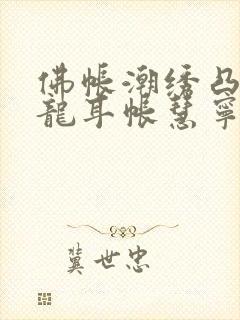 佛帐潮绣凸
龍耳帐慧寧
龚世忠